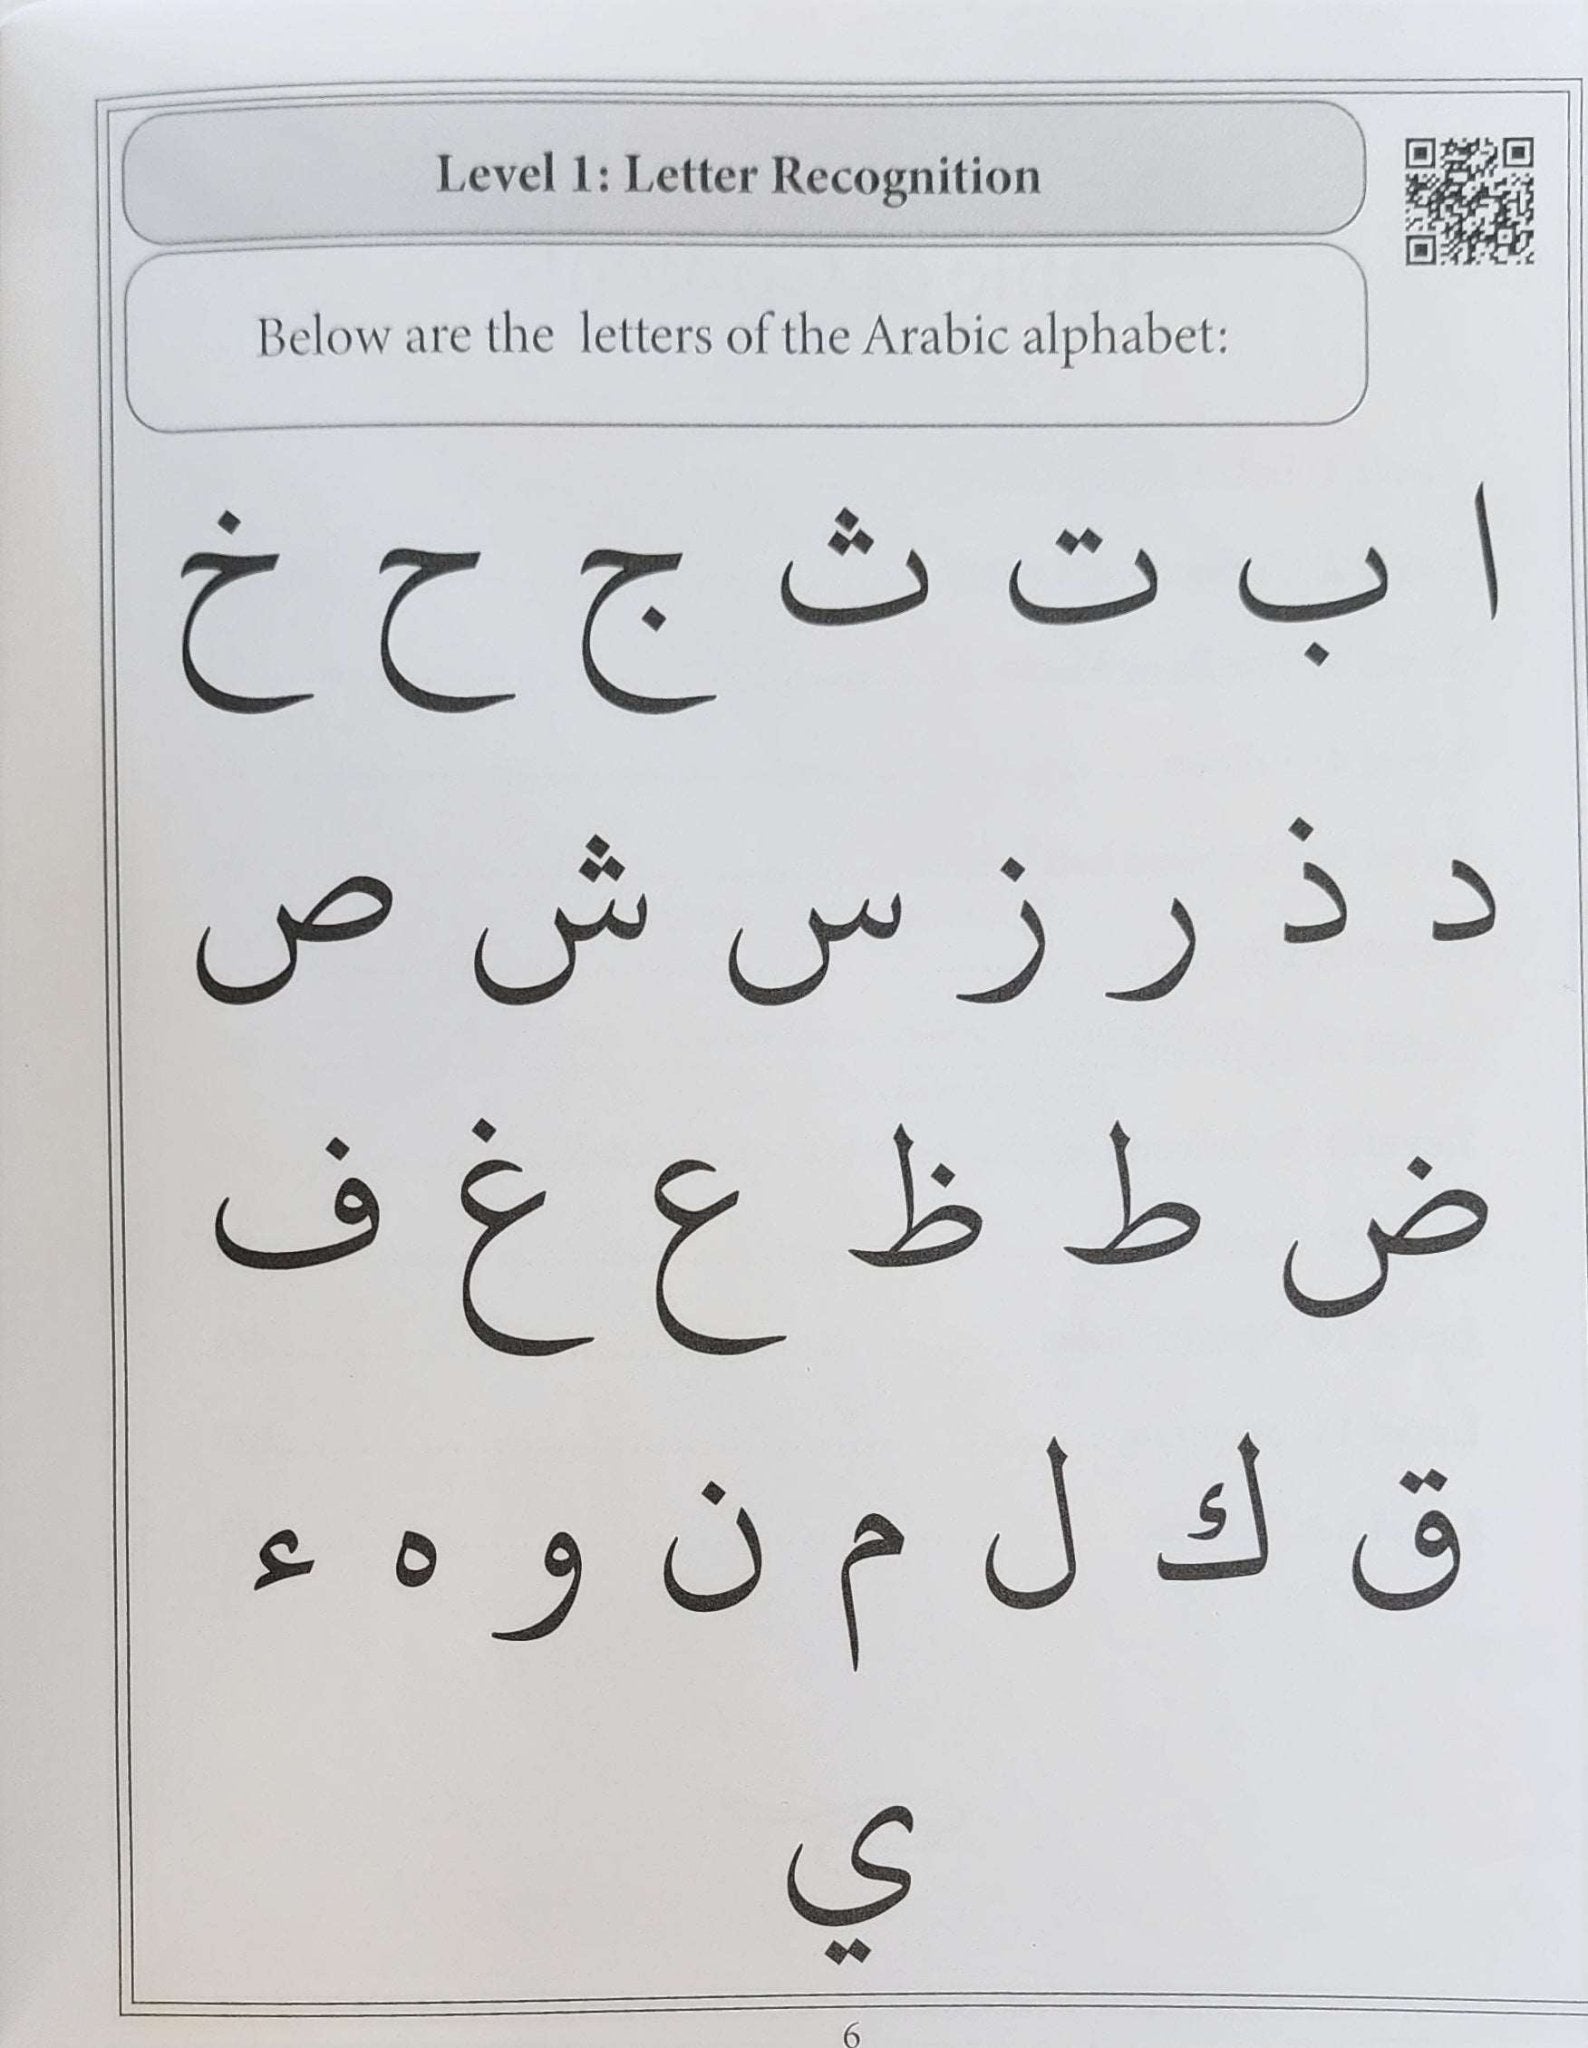 Level 1: Letter Recognition
Below are the letters of the Arabic alphabet:
ا ب ت ث ج ح خ
د ذ ر ز س ش ص
ض ط ظ ع غ ف
ق ك ل م ن و ه ء
ي
6